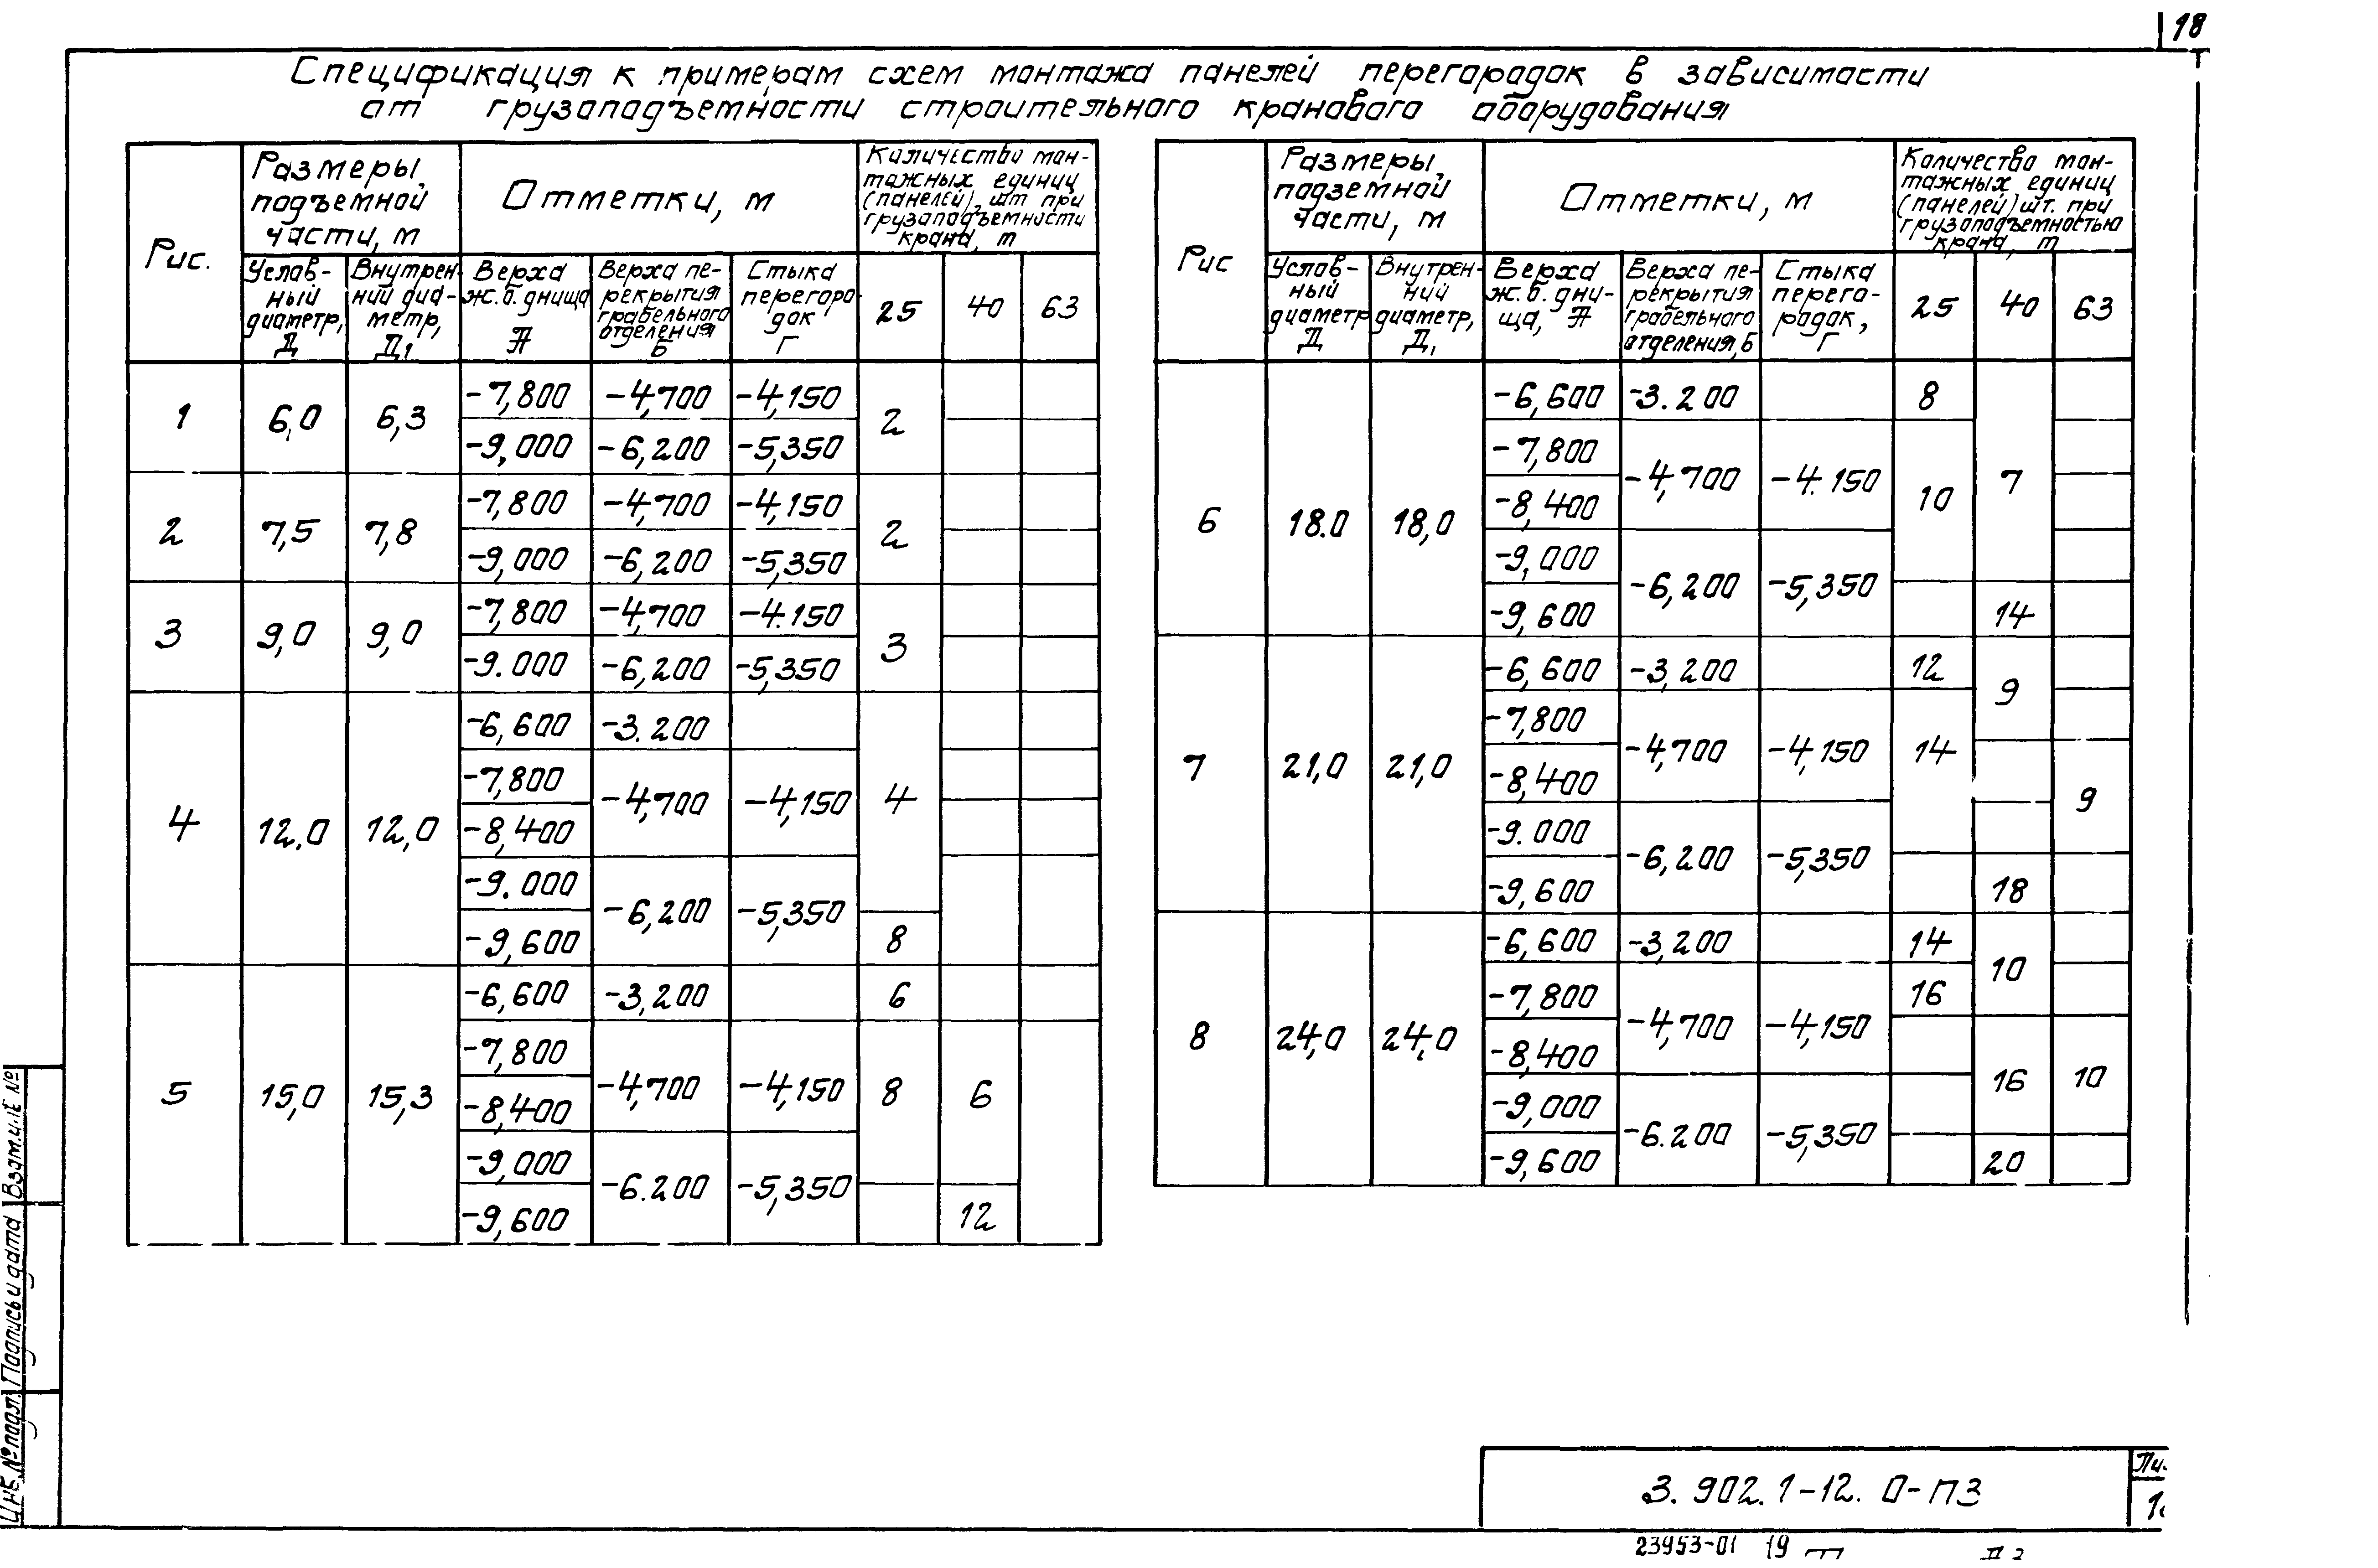 18
Спецификация к примерам схем монтажа панелей перегородок в зависимости
от грузоподъемности строительного кранового оборудования
Рис.
Размеры
подъемной
части, м
Отметки, м
Количество мон-
тажных единиц
(панелей), шт при
грузоподъемности
крана, т
Услов-
ный
диаметр,
Д
Внутрен-
ний диа-
метр,
Д1
Верха
ж.б. днища
А
Верха пе-
рекрытия
грабельного
отделения
Б
Стыка
перегоро-
док
Г
25 40 63
1 6,0 6,3 -7,800 -4,700 -4,150 2
-9,000 -6,200 -5,350
2 7,5 7,8 -7,800 -4,700 -4,150 2
-9,000 -6,200 -5,350
3 9,0 9,0 -7,800 -4,700 -4.150 3
-9.000 -6,200 -5,350
4 12,0 12,0 -6,600 -3.200 4
-7,800 -4,700 -4,150
-8,400
-9.000 -6,200 -5,350
-9,600 8
5 15,0 15,3 -6,600 -3,200 6
-7,800 -4,700 -4,150 8 6
-8,400
-9,000 -6.200 -5,350
-9,600 12
Рис
Размеры,
подземной
части, м
Отметки, м
Количество мон-
тажных единиц
(панелей) шт. при
грузоподъемностью
крана, т
Услов-
ный
диаметр
Д
Внутрен-
ний
диаметр,
Д1
Верха
ж.б. дни-
ща, А
Верха пе-
рекрытия
грабельного
отделения, Б
Стыка
перего-
родок,
Г
25 40 63
6 18.0 18,0 -6,600 -3.200 8 7
-7,800 -4,700 -4.150 10
-8,400
-9,000 -6,200 -5,350
-9,600 14
7 21,0 21,0 -6,600 -3,200 12 9
-7,800 -4,700 -4,150 14
-8,400 9
-9.000 -6,200 -5,350
-9,600 18
8 24,0 24,0 -6,600 -3,200 14 10
-7,800 -4,700 -4,150 16
-8,400 16 10
-9,000 -6.200 -5,350
-9,600 20
Инв. № подл. Подпись и дата Взам. инв №
3.902.1-12. 0-ПЗ
23953-01 19